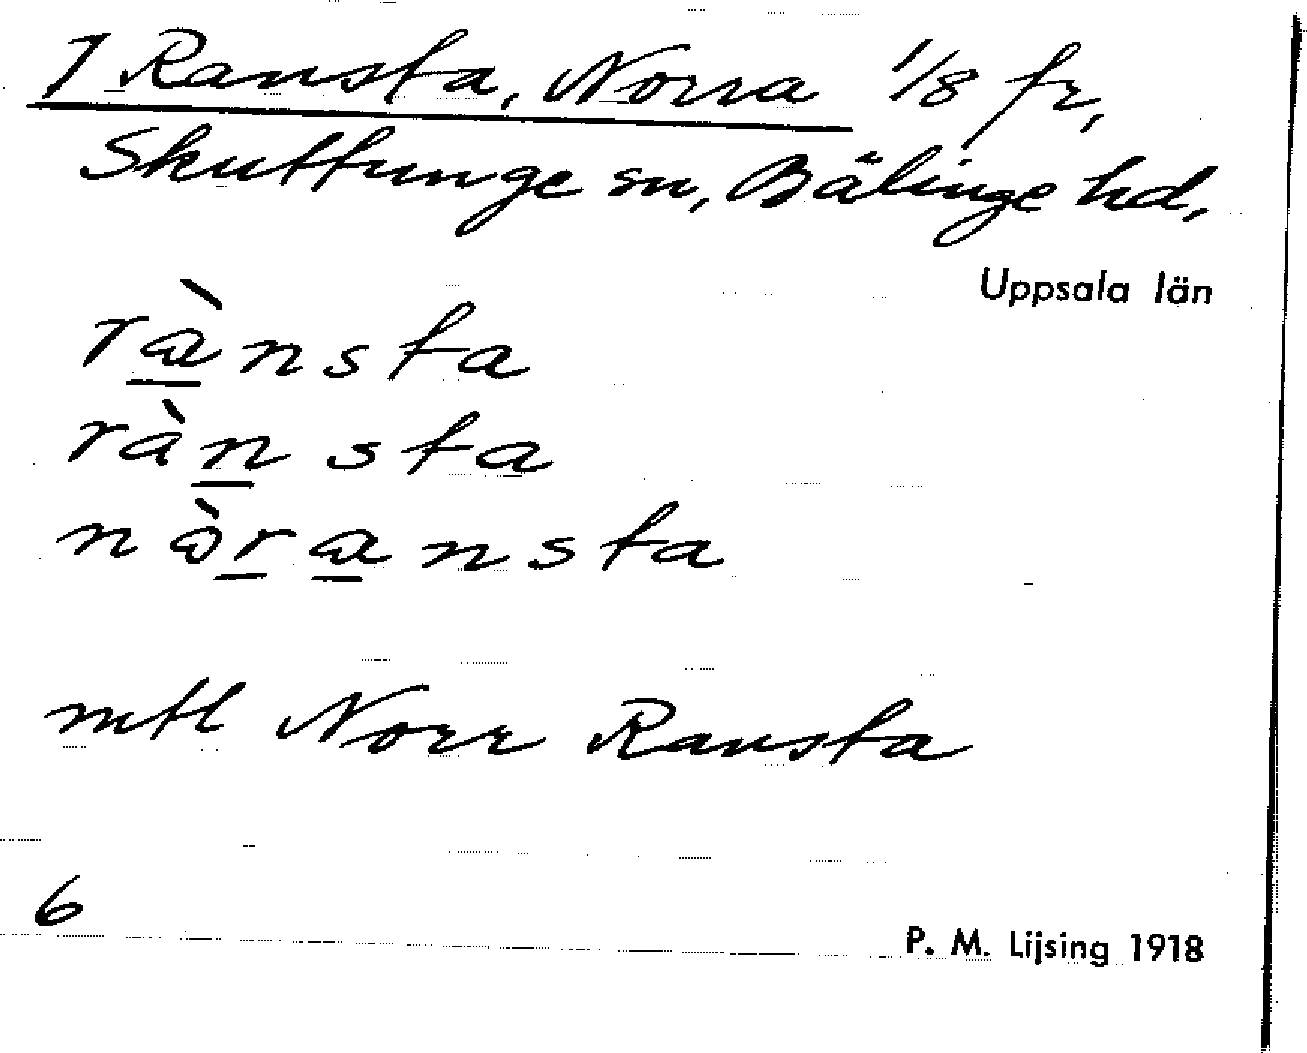 1 Ransta, Norra 1/8 fr,
Skuttunge sn, Bälinge hd,
Uppsala län
rànsta
rànsta
nòransta
mtl Norr Ransta
6
P. M. Lijsing 1918